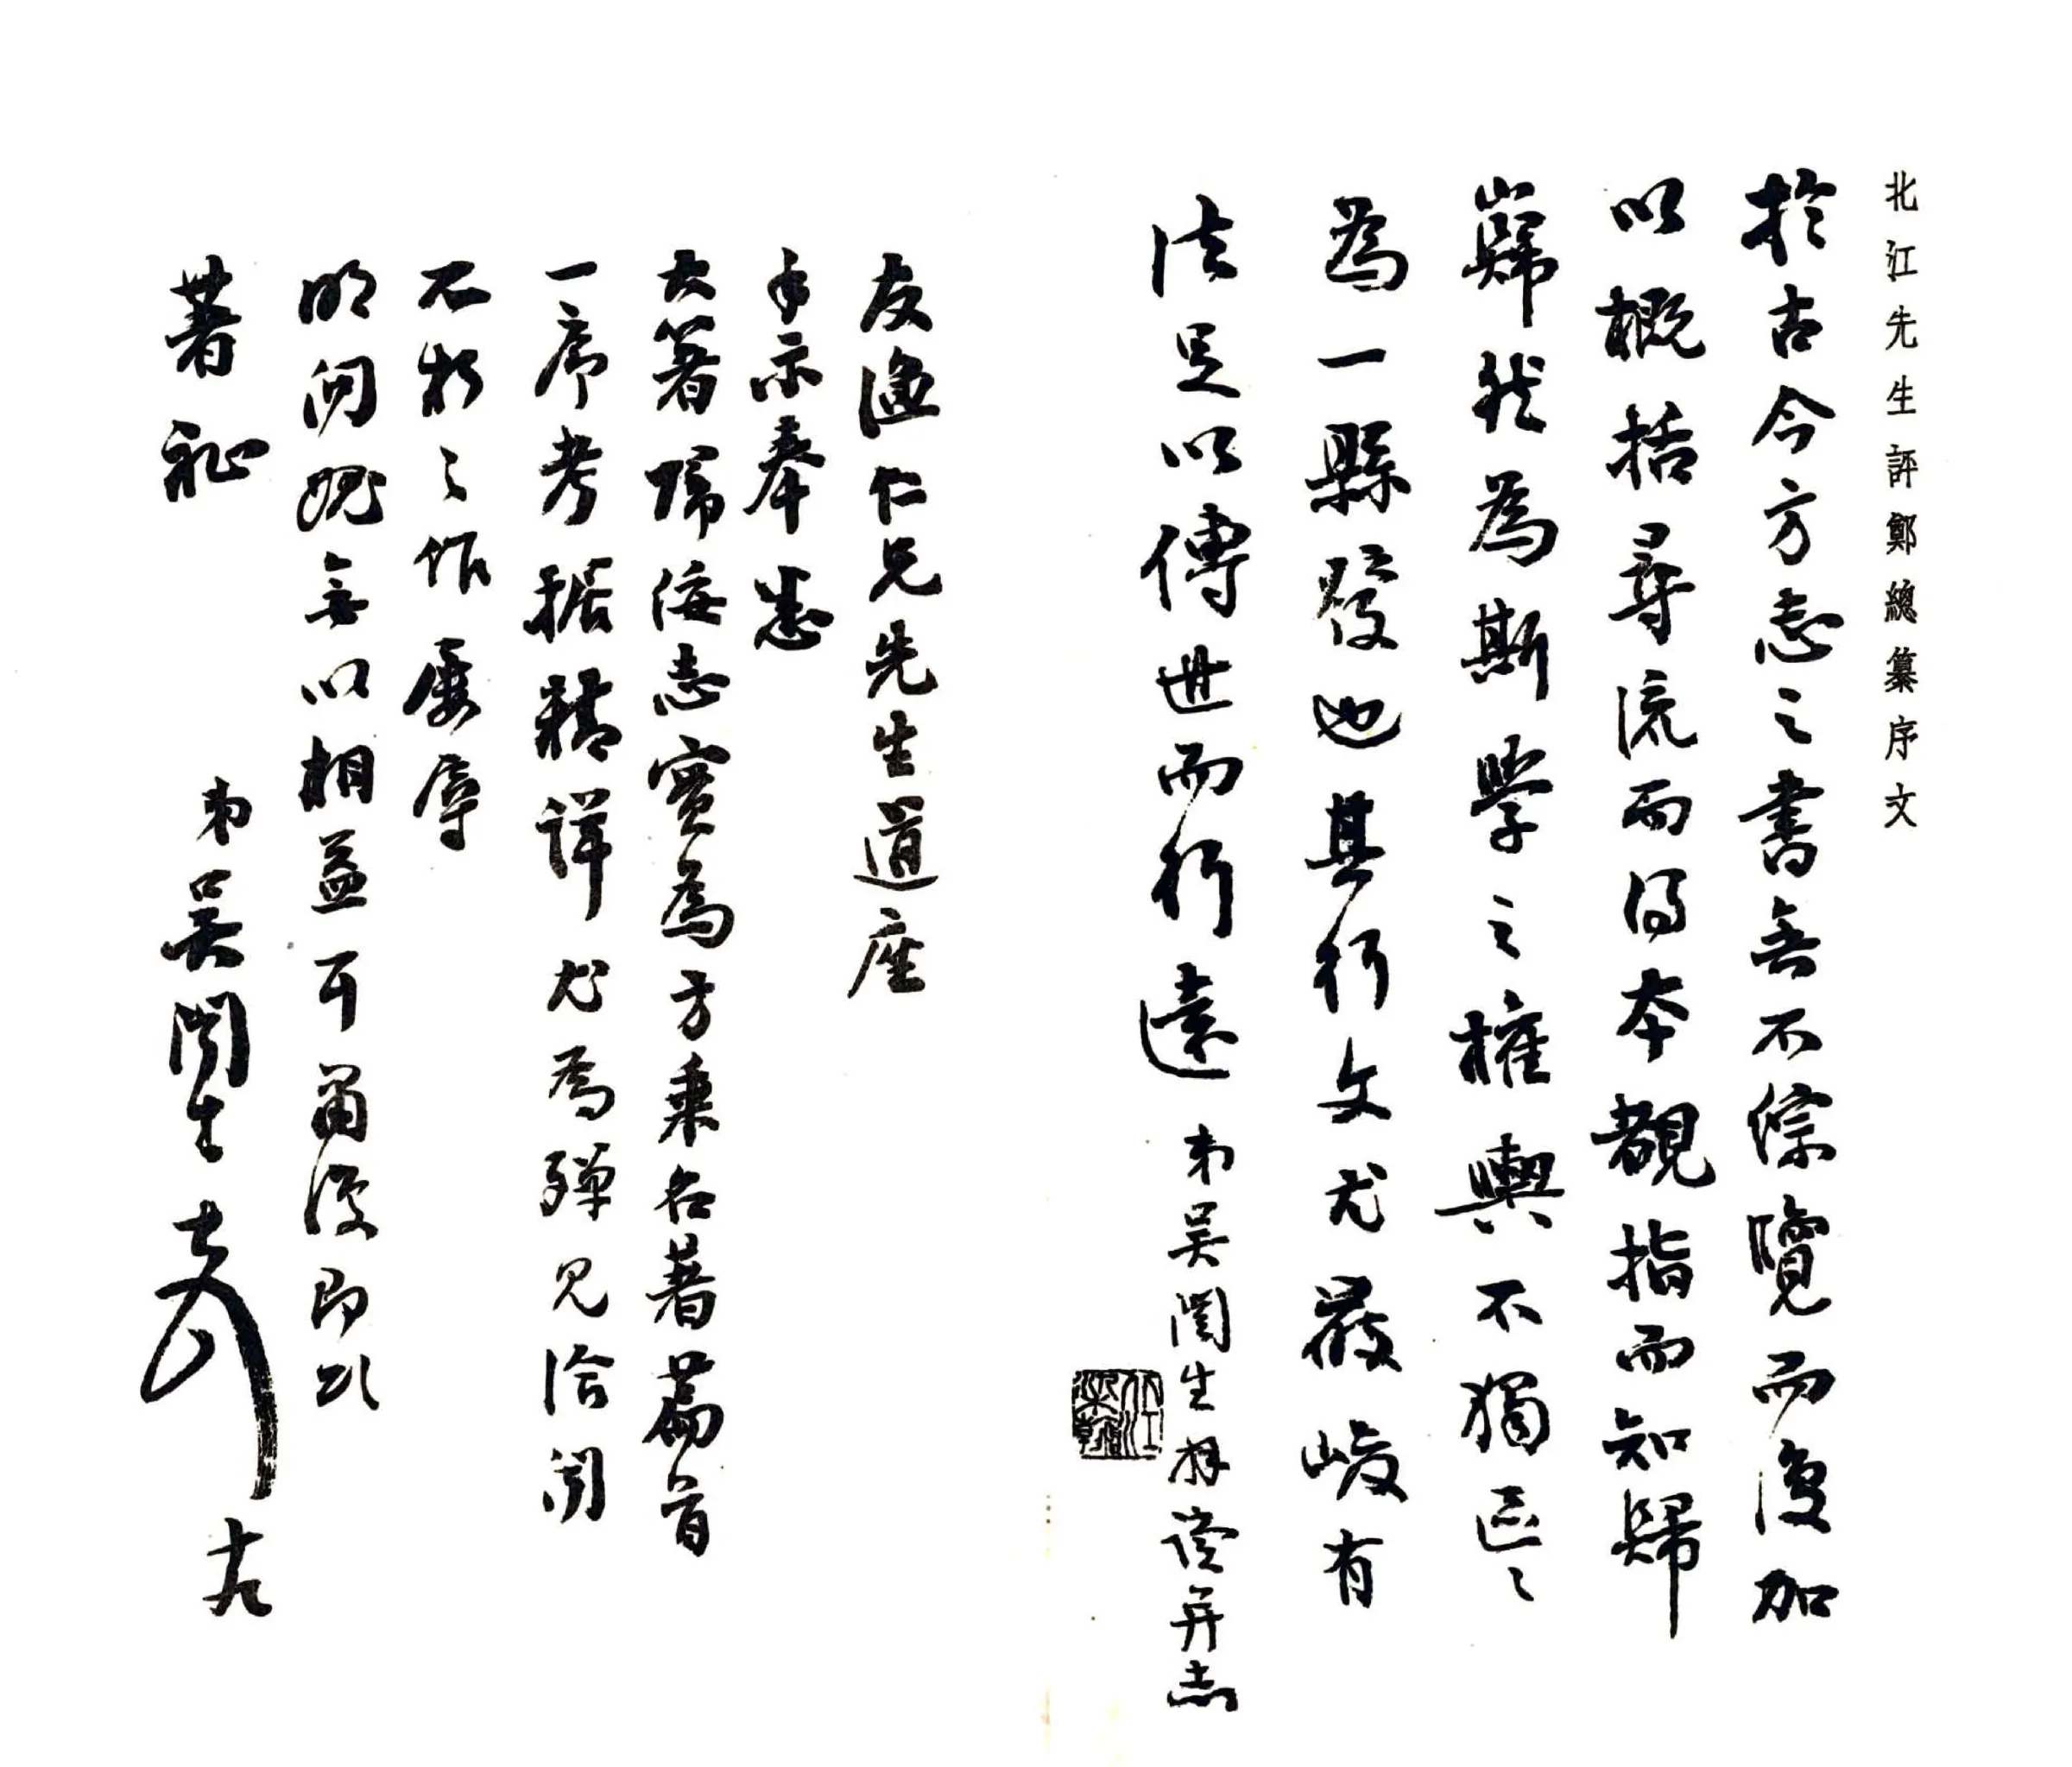 北江先生評鄭總纂序文
於古今方志之書無不綜覽而復加
以概括尋流而得本觀指而知歸
巋然為斯學之權輿不獨區區
為一縣發也其行文尤嚴峻有
法足以傳世而行遠 弟吳闓生拜讀并志
友漁仁兄先生道座
手示奉悉
大著歸綏志實為方乘名著篇首
一序考據精詳尤為殫見洽聞
不朽之作屢辱
明問愧無以相益耳肅復即頌
著祉
弟吳闓生 十九